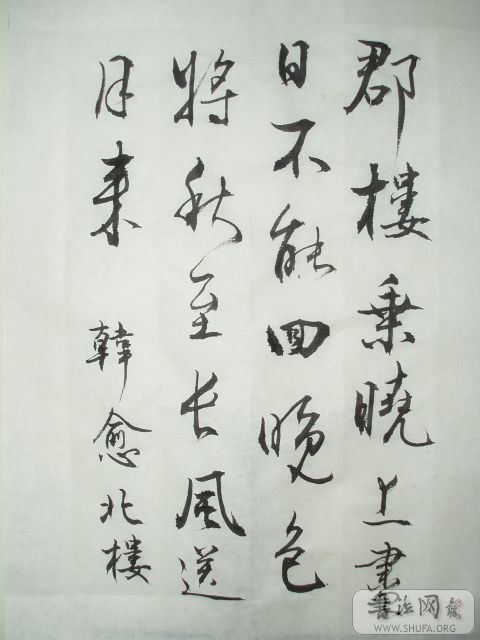 郡樓乘曉上盡
日不能回晚色
將秋至長風送
月來 韓愈北樓
書法网
WWW.SHUFA.ORG